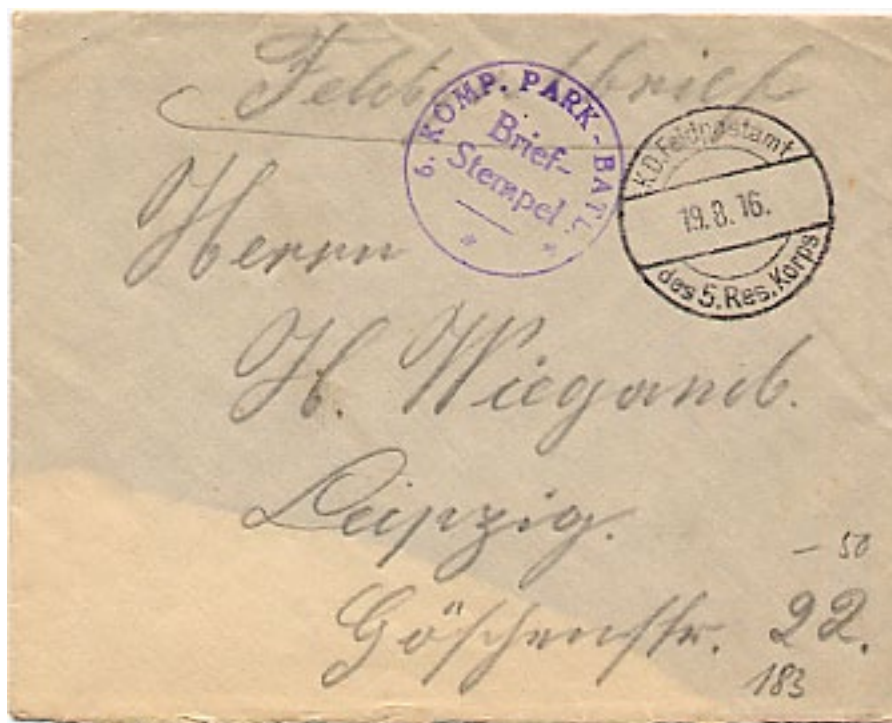 Feldpostbrief
6. KOMP. PARK-BATL.
Brief-
Stempel
K.D. Feldpostamt
19.8.16.
des 5. Res. Korps
Herrn
H. Wiegand.
Leipzig.
- 50
Göschenstr. 22.
183